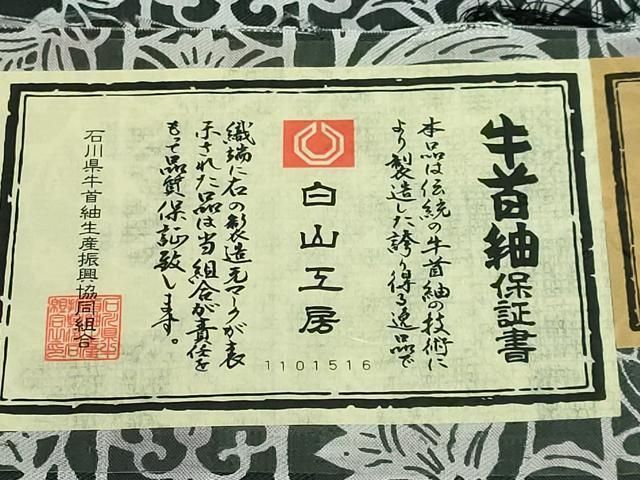 牛首紬保証書
本品は伝統の牛首紬の技術に
より製造した誇り得る逸品で
白山工房
1101516
織端に右の製造元マークが表
示された品は当組合が責任を
もって品質保証致します。
石川県牛首紬生産振興協同組合